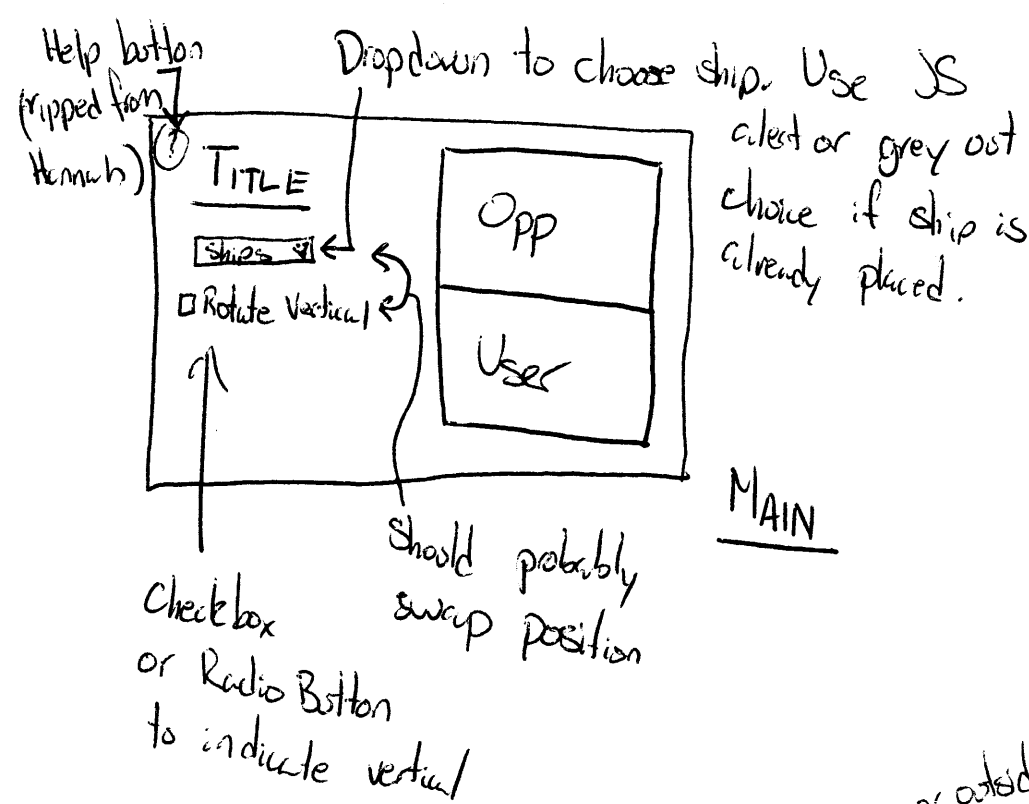 Help button
(ripped from
Hannah)
Dropdown to choose ship. Use JS
alert or grey out
choice if ship is
already placed.
?
TITLE
Ships
Rotate Vertical
Opp
User
MAIN
Should probably
swap position
Checkbox
or Radio Button
to indicate vertical
or outsid